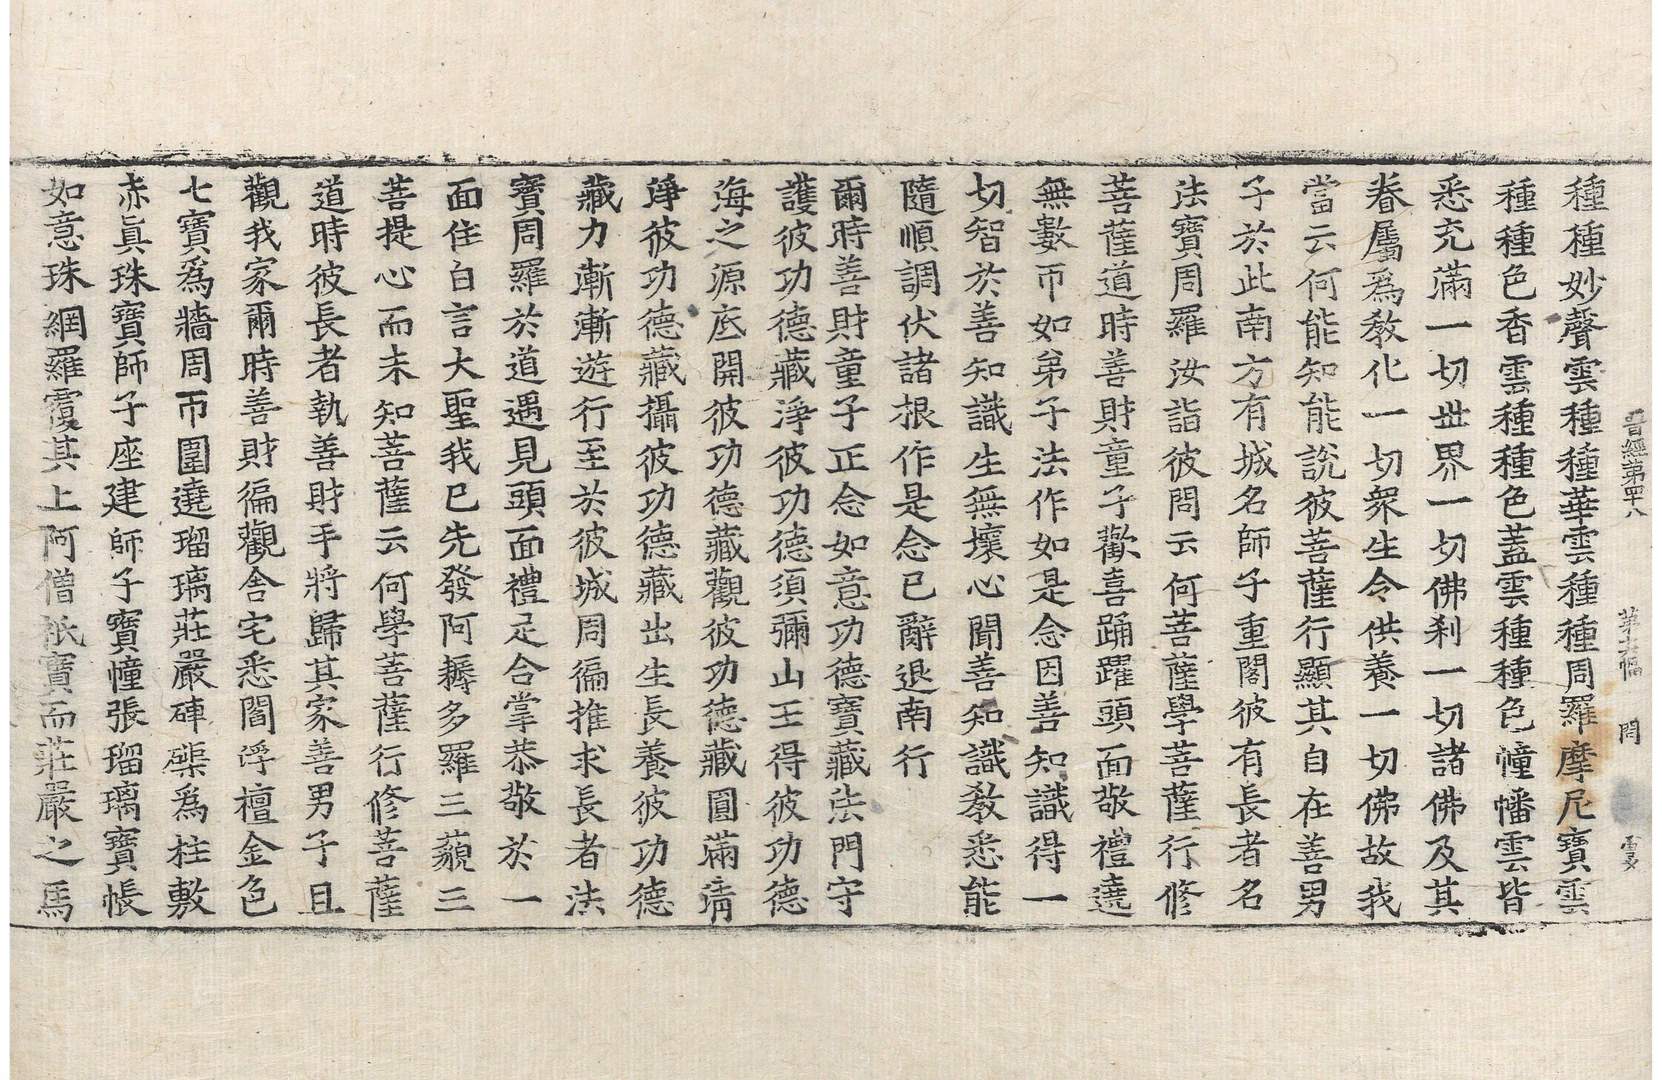 晋經第四十八　第十六幅　閏　雲文
種種妙聲雲種種華雲種種周羅摩尼寶雲
種種色香雲種種色蓋雲種種色幢幡雲皆
悉充滿一切世界一切佛刹一切諸佛及其
眷屬爲教化一切衆生令供養一切佛故我
當云何能知能說彼菩薩行顯其自在善男
子於此南方有城名師子重閣彼有長者名
法寶周羅汝詣彼問云何菩薩學菩薩行修
菩薩道時善財童子歡喜踊躍頭面敬禮遶
無數帀如弟子法作如是念因善知識得一
切智於善知識生無壞心聞善知識教悉能
隨順調伏諸根作是念已辭退南行
爾時善財童子正念如意功德寶藏法門守
護彼功德藏淨彼功德須彌山王得彼功德
海之源底開彼功德藏觀彼功德藏圓滿清
淨彼功德藏攝彼功德藏出生長養彼功德
藏力漸漸遊行至於彼城周徧推求長者法
寶周羅於道遇見頭面禮足合掌恭敬於一
面住白言大聖我已先發阿耨多羅三藐三
菩提心而未知菩薩云何學菩薩行修菩薩
道時彼長者執善財手將歸其家善男子且
觀我家爾時善財徧觀舍宅悉閻浮檀金色
七寶爲牆周帀圍遶瑠璃莊嚴硨磲爲柱敷
赤眞珠寶師子座建師子寶幢張瑠璃寶帳
如意珠網羅覆其上阿僧祇寶而莊嚴之馬